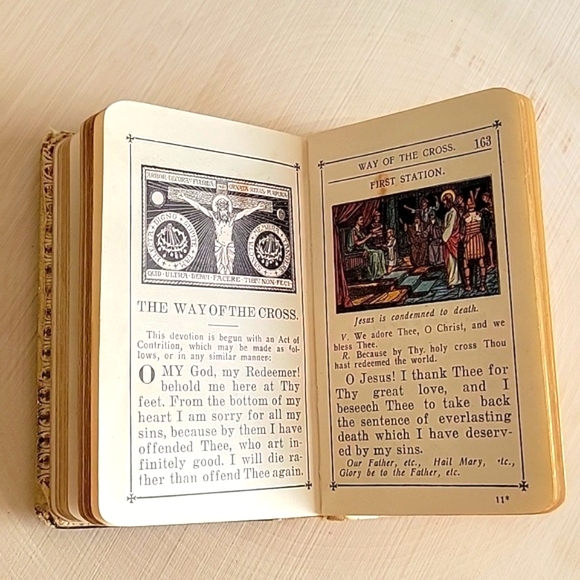 ARBOR DECORA ET FULGIDA ORNATA REGIS PURPURA
QUID ULTRA DEBUI FACERE TIBI NON FECI
THE WAY OF THE CROSS.
This devotion is begun with an Act of
Contrition, which may be made as fol-
lows, or in any similar manner:
O MY God, my Redeemer!
behold me here at Thy
feet. From the bottom of my
heart I am sorry for all my
sins, because by them I have
offended Thee, who art in-
finitely good. I will die ra-
ther than offend Thee again.
WAY OF THE CROSS. 163
FIRST STATION.
Jesus is condemned to death.
V. We adore Thee, O Christ, and we
bless Thee.
R. Because by Thy holy cross Thou
hast redeemed the world.
O Jesus! I thank Thee for
Thy great love, and I
beseech Thee to take back
the sentence of everlasting
death which I have deserv-
ed by my sins.
Our Father, etc., Hail Mary, etc.,
Glory be to the Father, etc.
11*